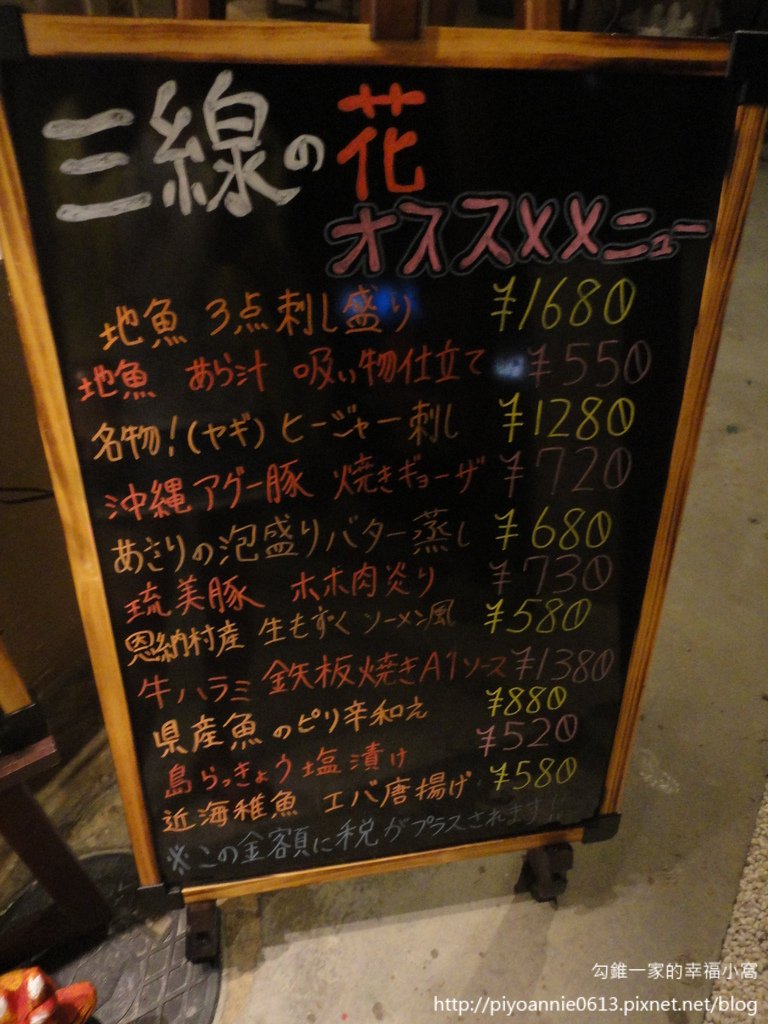 三線の花
オススメメニュー
地魚 3点刺し盛り ¥1680
地魚 あら汁 吸い物仕立て ¥550
名物!(ヤギ)ヒージャー刺し ¥1280
沖縄アグー豚 焼きギョーザ ¥720
あさりの泡盛りバター蒸し ¥680
琉美豚 ホホ肉炎り ¥730
恩納村産 生もずく ソーメン風 ¥580
牛ハラミ 鉄板焼きA1ソース ¥1380
県産魚のピリ辛和え ¥880
島らっきょう塩漬け ¥520
近海稚魚 エバ唐揚げ ¥580
※この金額に税がプラスされます!!
勾錐一家的幸福小窩
http://piyoannie0613.pixnet.net/blog